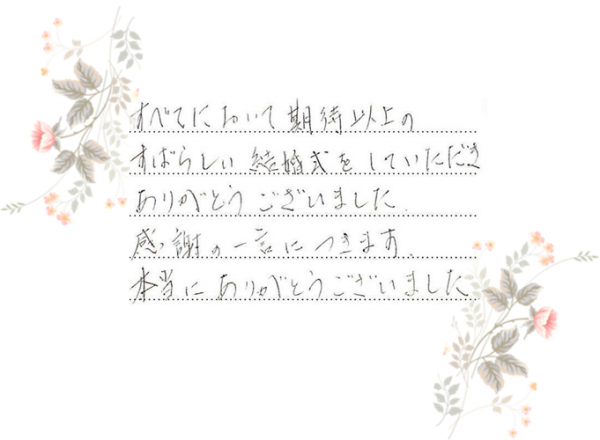 すべてにおいて期待以上の
すばらしい結婚式をしていただき
ありがとうございました.
感謝の一言につきます.
本当にありがとうございました.